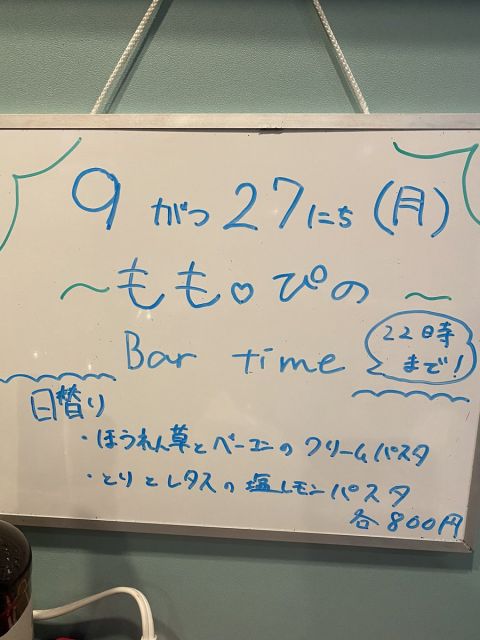 9がつ27にち(月)
〜もも♡ぴの〜
Bar time
22時まで!
日替り
・ほうれん草とベーコンのクリームパスタ
・とりとレタスの塩レモンパスタ
各800円